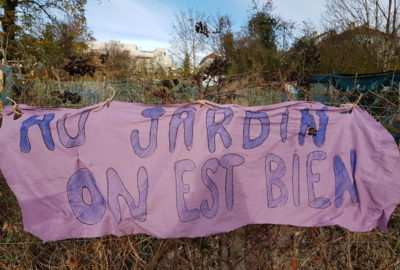 AU JARDIN
ON EST BIEN